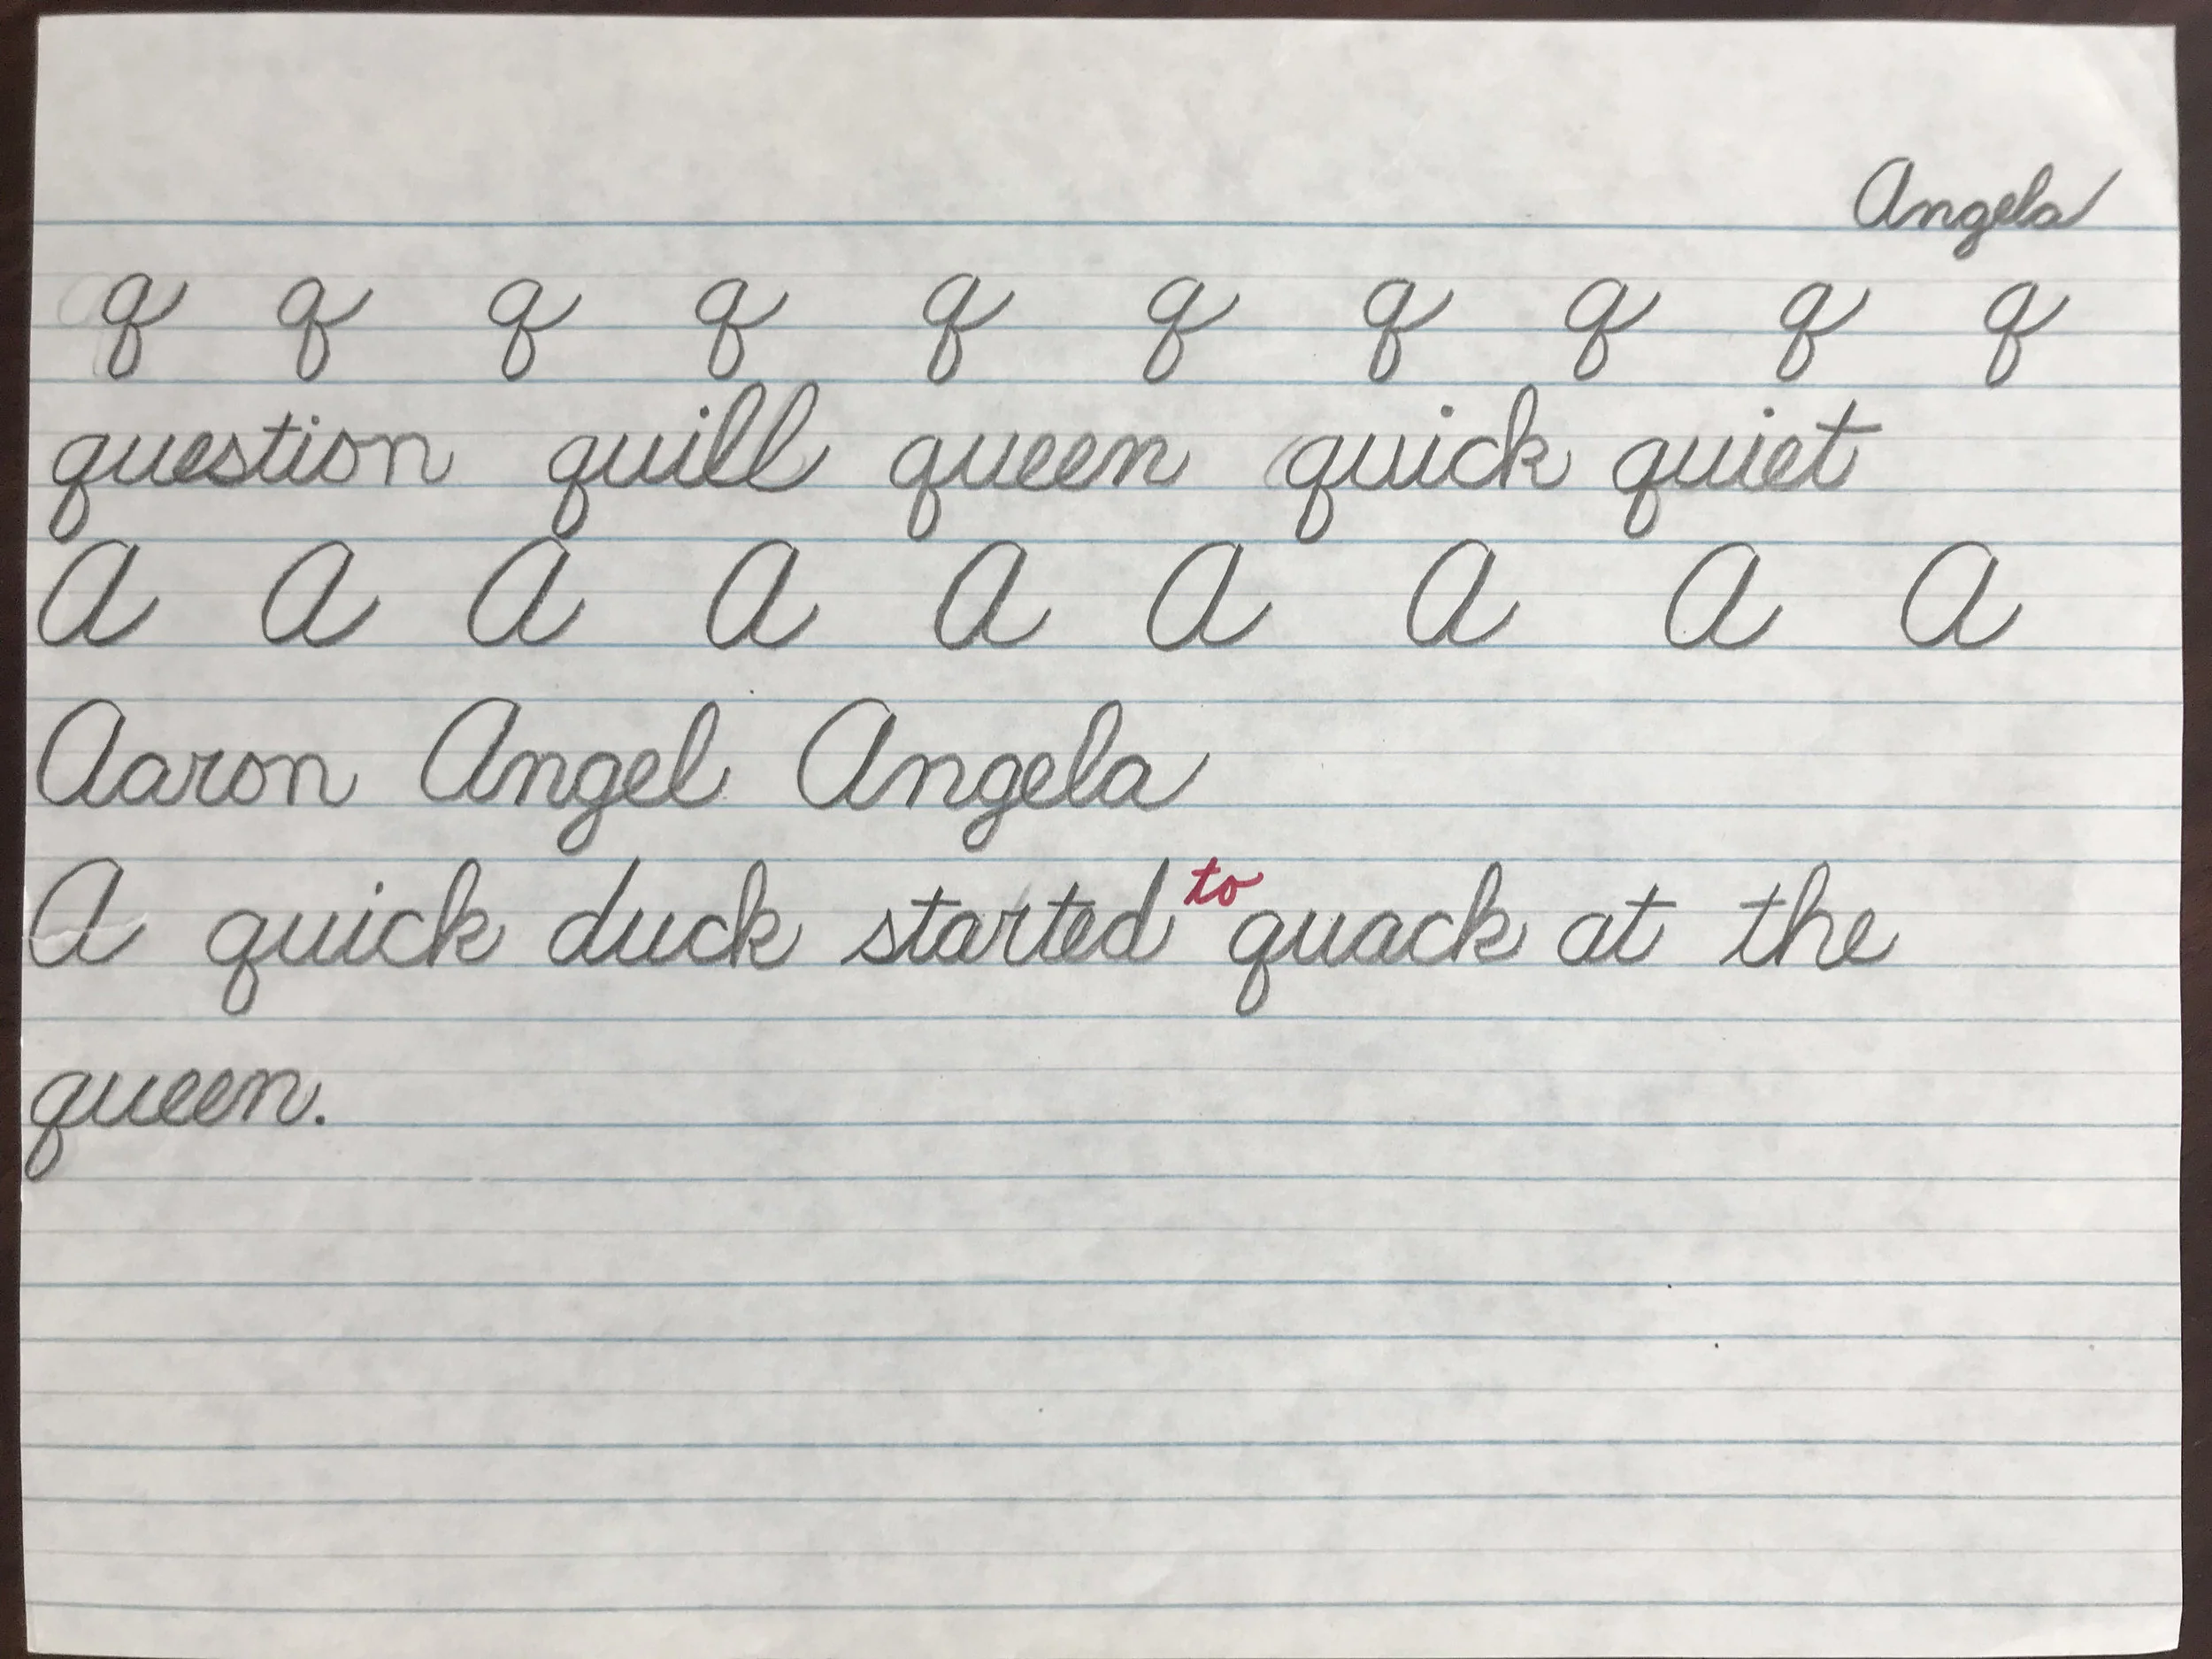 Angela
q q q q q q q q q q
question quill queen quick quiet
A A A A A A A A A
Aaron Angel Angela
A quick duck started to quack at the
queen.